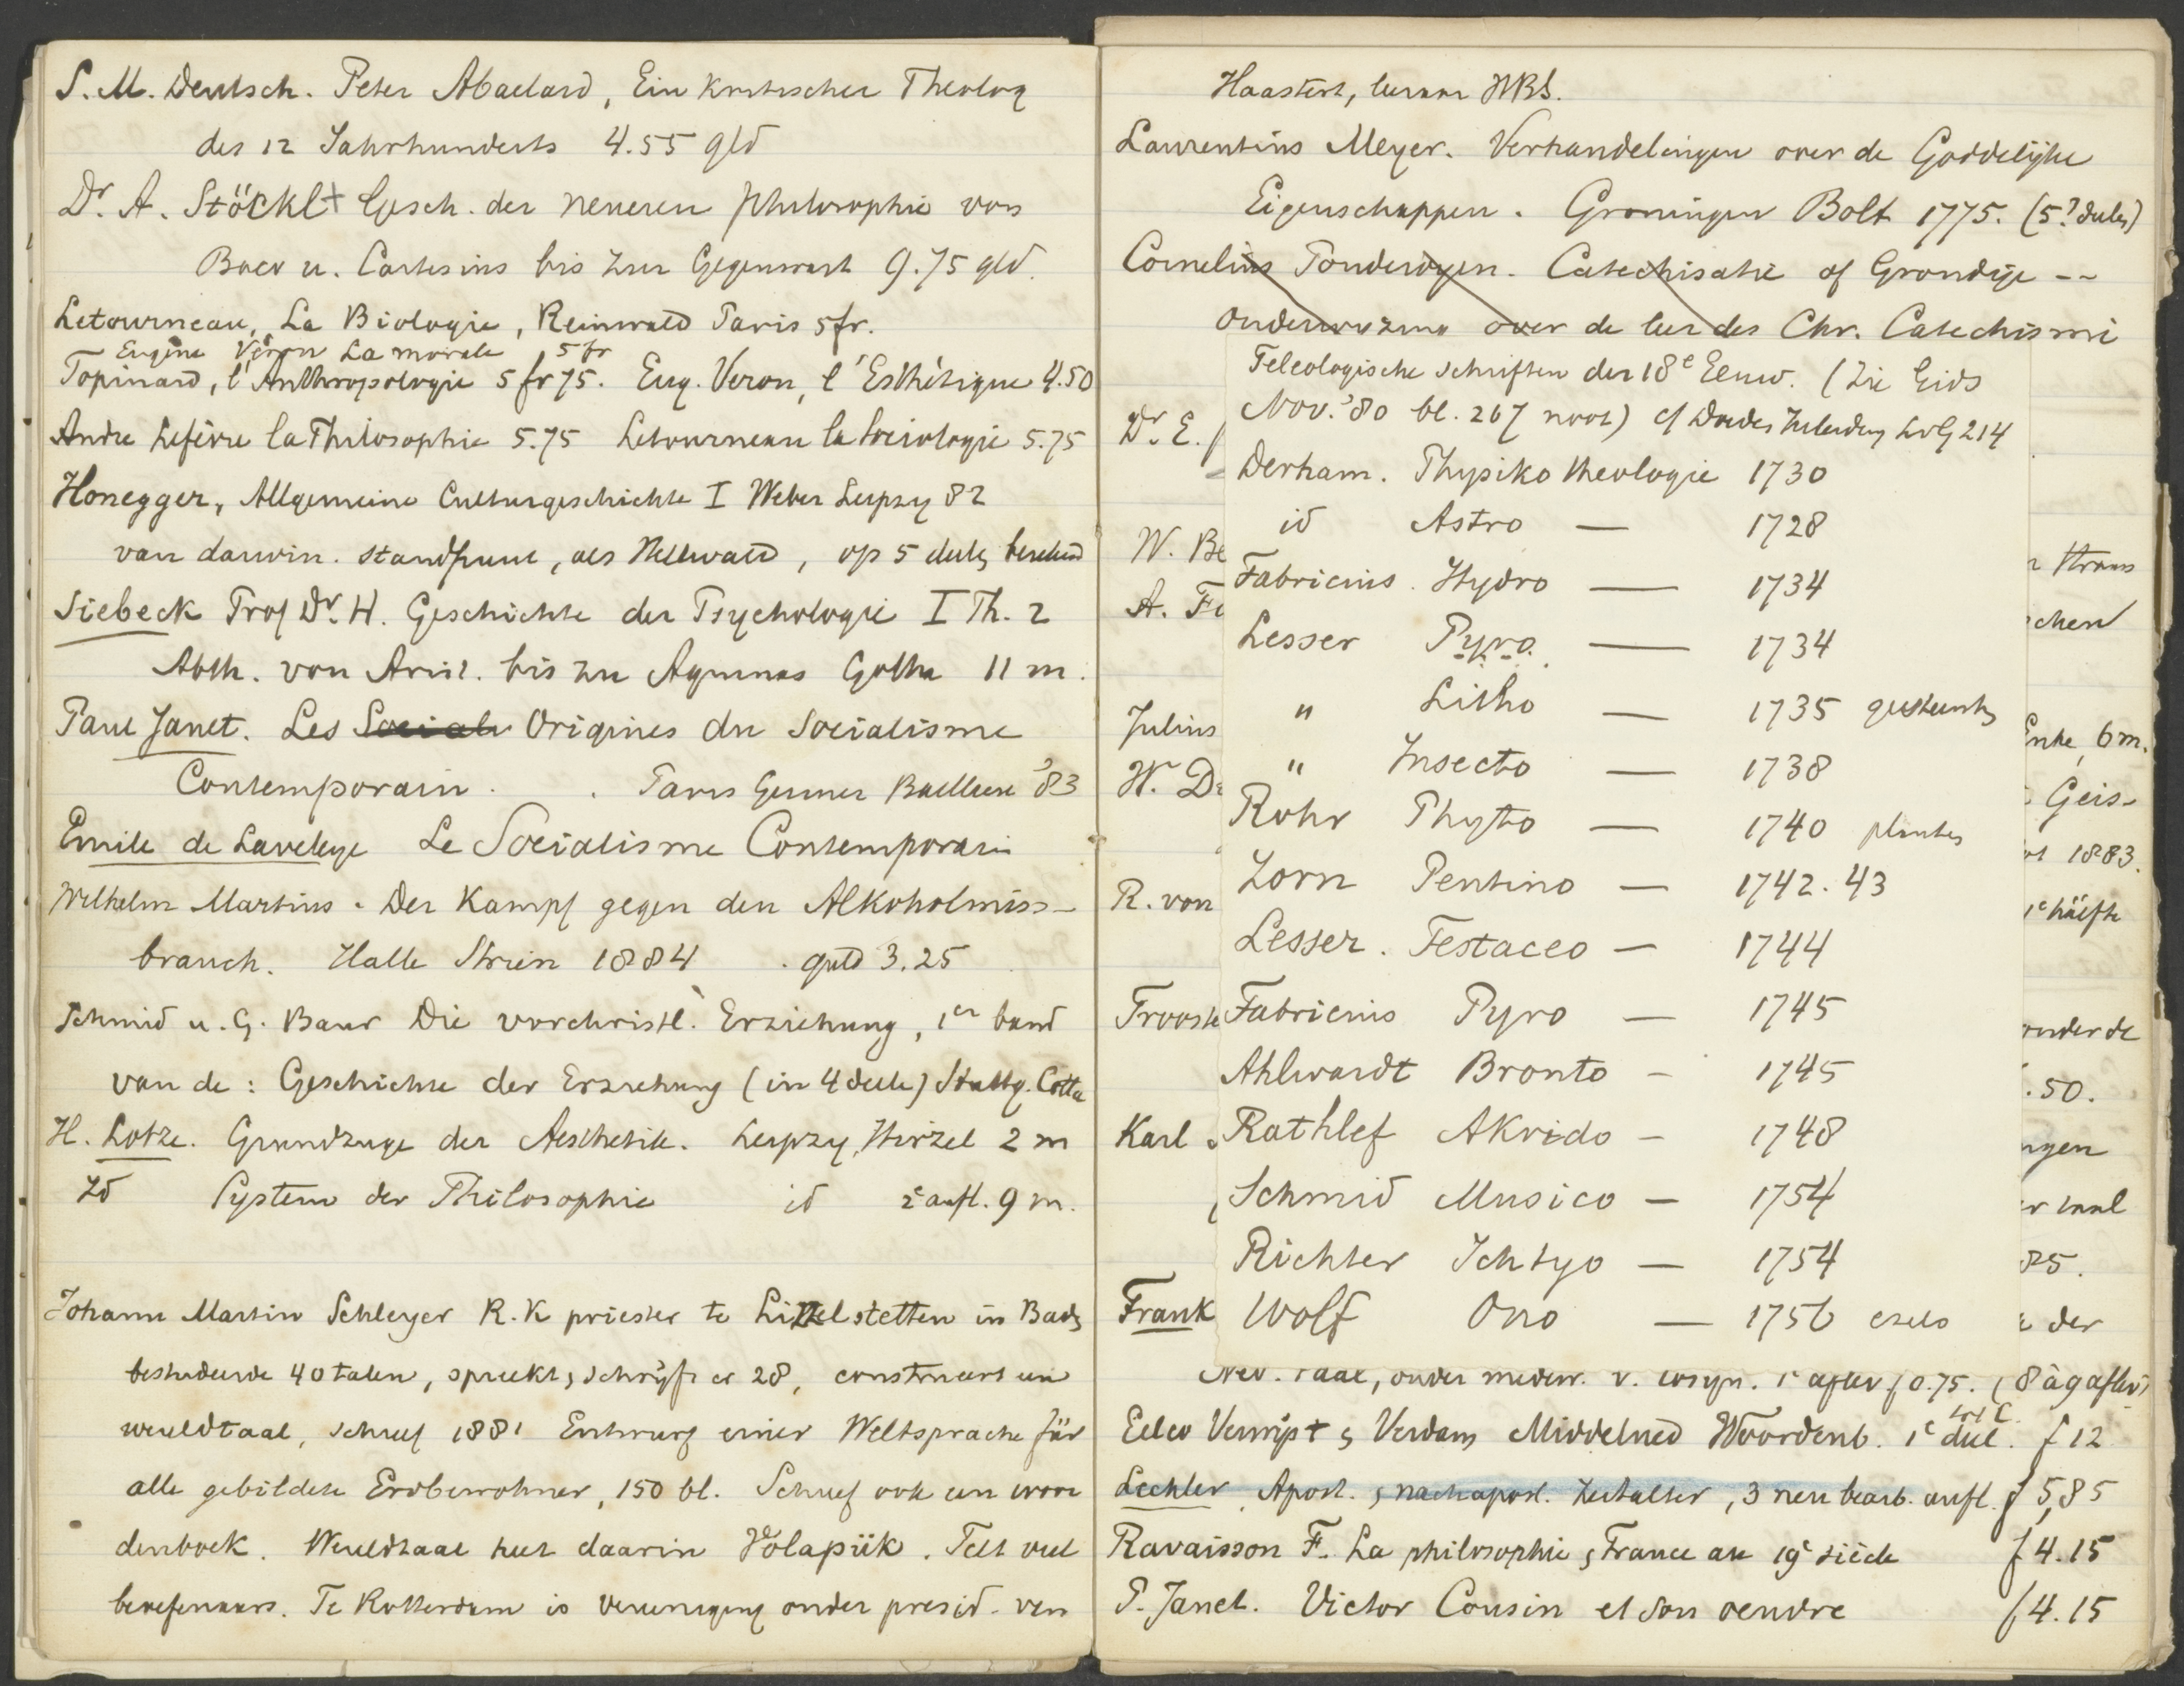 S. M. Deutsch. Peter Abaelard, Ein kritischer Theolog
des 12 Jahrhunderts 4.55 gld
Dr. A. Stöckl+ Gesch. der neueren philosophie von
Baco u. Cartesius bis zur Gegenwart 9.75 gld.
Letourneau, La Biologie, Reinwald Paris 5 fr.
Eugène Véron La morale 5 fr
Topinard, l'Anthropologie 5 fr 75. Eug. Veron, l'Esthétique 4.50
Andre Lefèvre la Philosophie 5.75 Letourneau la Sociologie 5.75
Honegger, Allgemeine Culturgeschichte I Weber Leipzig 82
van darwin. standpunt, als Hellwald, op 5 deelen berekend
Siebeck Prof Dr. H. Geschichte der Psychologie I Th. 2
Abth. von Arist. bis zu Aquinas Gotha 11 m.
Paul Janet. Les Sociale Origines du Socialisme
Contemporain. Paris Germer Baillere '83
Emile de Laveleye Le Socialisme Contemporain
Wilhelm Martius. Der Kampf gegen den Alkoholmiss-
brauch. Halle Strien 1884 guld 3.25
Schmid u. G. Baur Die vorchristl. Erziehung, 1er band
van de: Geschichte der Erziehung (in 4 deele) Stuttg. Cotta
H. Lotze. Grundzuge der Aesthetik. Leipzig, Hirzel 2 m
Id System der Philosophie id 2e aufl. 9 m.
Johann Martin Schleyer R.K priester te Litzelstetten in Baden
bestudeerde 40 talen, spreekt en schrijft er 28, construeert een
wereldtaal, schreef 1881 Entwurf einer Weltsprache für
alle gebildete Erdbewohner, 150 bl. Schreef ook een woor
denboek. Wereldtaal heet daarin Volapük. Telt veel
beoefenaars. Te Rotterdam is vereeniging onder presid. van
Haastert, leeraar HBS.
Laurentius Meyer. Verhandelingen over de Goddelijke
Eigenschappen. Groningen Bolt 1775. (5? deelen)
Cornelius Tonderoyen. Catechisatie of Grondige --
onderwyzing over de leer des Chr. Catechismi
Teleologische schriften der 18e Eeuw. (Zie Gids
Nov. '80 bl. 267 noot) cf Doedes Inleiding LvG 214
Derham. Physiko theologie 1730
id Astro — 1728
Fabricius. Hydro — 1734
Lesser Pyro. — 1734
" Litho — 1735 gesteenten
" Insecto — 1738
Rohr Phyto — 1740 planten
Zorn Pentino — 1742. 43
Lesser. Testaceo — 1744
Fabricius Pyro — 1745
Ahlwardt Bronto - 1745
Rathlef Akrido - 1748
Schmid Musico — 1754
Richter Ichtyo — 1754
Wolf Ono — 1756 ezels
Dr. E.
W. Be
A. Fo
Julius
W. D
R. von
Troost
Karl
Frank
Straus
schen
Enke, 6 m.
Geis-
1883.
1e hälfte
onder de
.50.
ngen
85.
der
Ned. taal, onder medew. v. Cosijn. 1e aflev f 0.75. (8 à 9 aflev)
Eelco Verwijs + en Verdam Middelned Woordenb. 1e deel. f 12
Lechler Apost. en nachapost. Zeitalter, 3 neu bearb. aufl. f 5,85
Ravaisson F. La philosophie en France au 19e siècle f 4.15
P. Janet. Victor Cousin et son oeuvre f 4.15